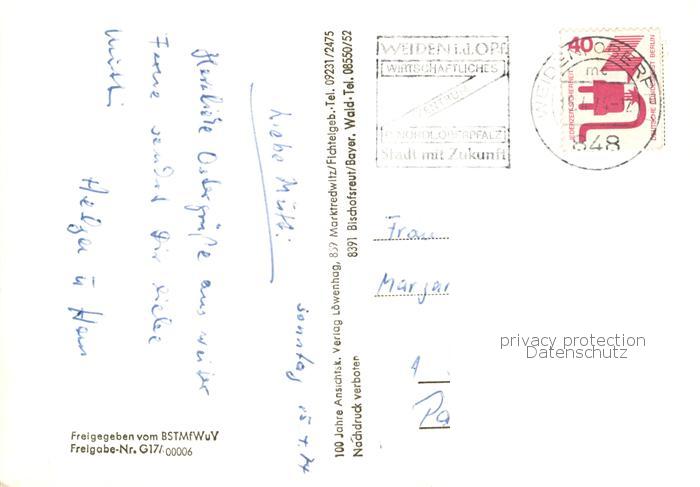 Liebe Mutti!
Herzliche Ostergrüße aus weiter
Ferne sendet Dir liebe
Mutti
Helga u Hans
100 Jahre Ansichtsk. Verlag Löwenhag, 859 Marktredwitz/Fichtelgeb.·Tel. 09231/2475
8391 Bischofsreut/Bayer. Wald·Tel. 08550/52
Nachdruck verboten
Freigegeben vom BSTMfWuV
Freigabe-Nr. G17/ 00006
WEIDEN i.d.OPf
WIRTSCHAFTLICHES
ZENTRUM
NORDLOBERPFALZ
Stadt mit Zukunft
40
JEDERZEIT SICHERHEIT
DEUTSCHE BUNDESPOST BERLIN
848
Frau
Margar
1
Pa
privacy protection
Datenschutz